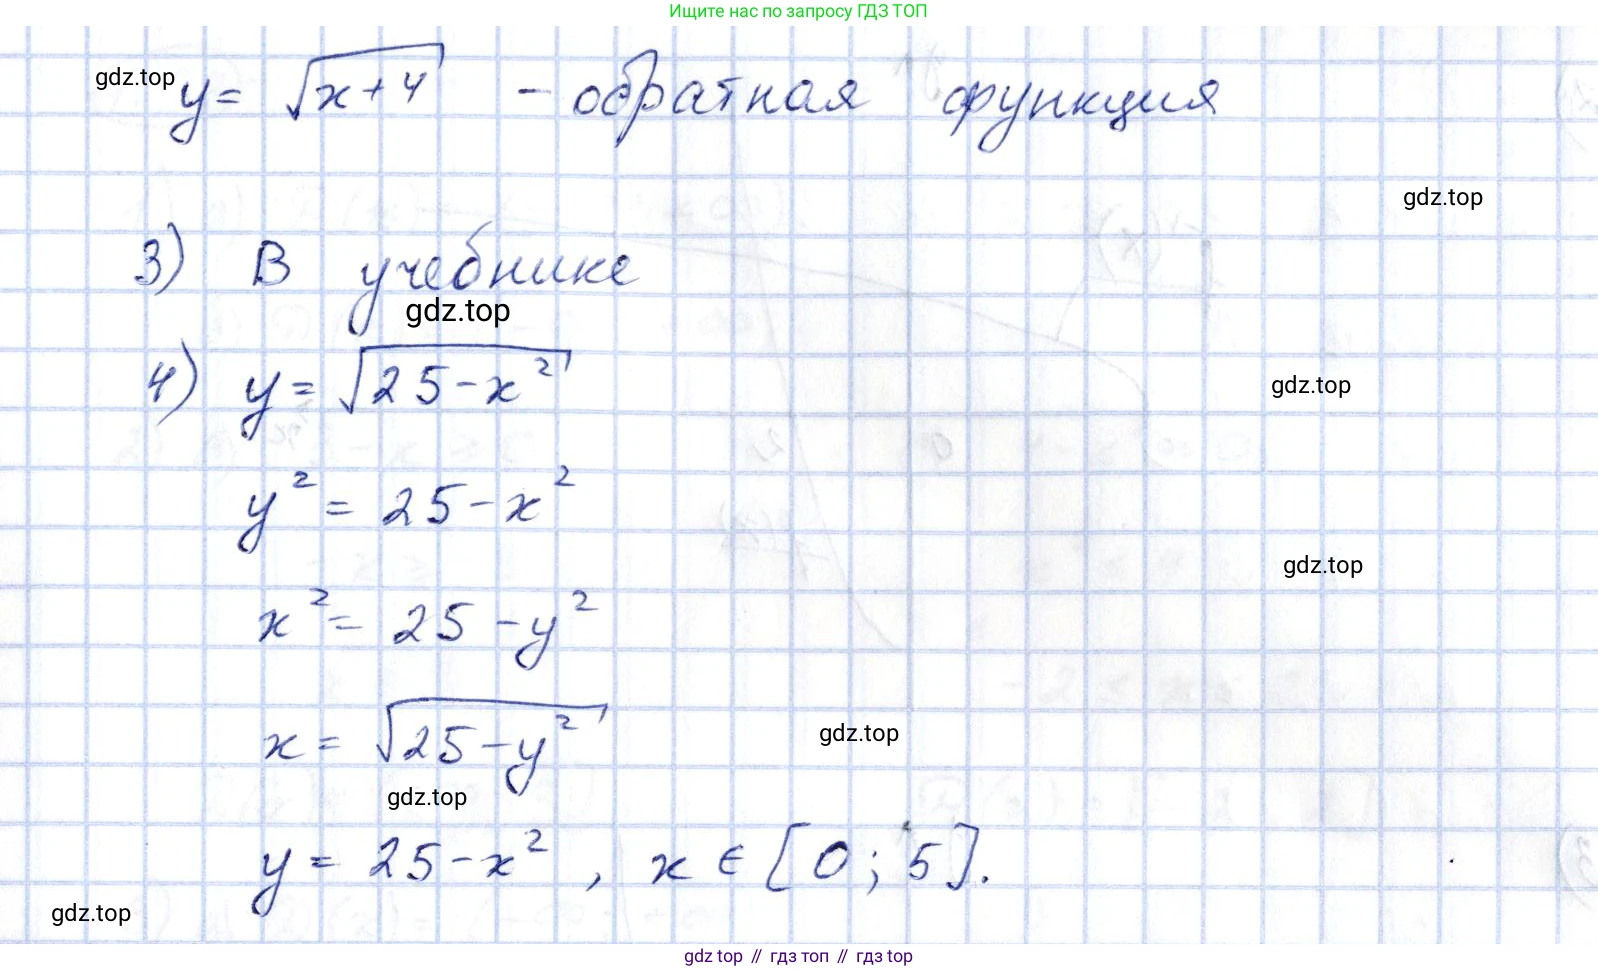 Ищите нас по запросу ГДЗ ТОП
gdz.top
y = √(x+4) - обратная функция
gdz.top
3) В учебнике
gdz.top
4) y = √(25-x²)
gdz.top
y² = 25-x²
gdz.top
x² = 25-y²
x = √(25-y²)
gdz.top
gdz.top
y = 25-x², x ∈ [0; 5].
gdz.top
gdz top // гдз топ // гдз top